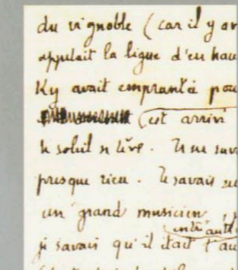 du vignoble (car il y av
appelait la ligne d'en hau
Ky avait empruntée pou
(est arrivé
le soleil se lève. Une
presque rien. Je savais
un grand musicien,
je savais qu'il était l'au